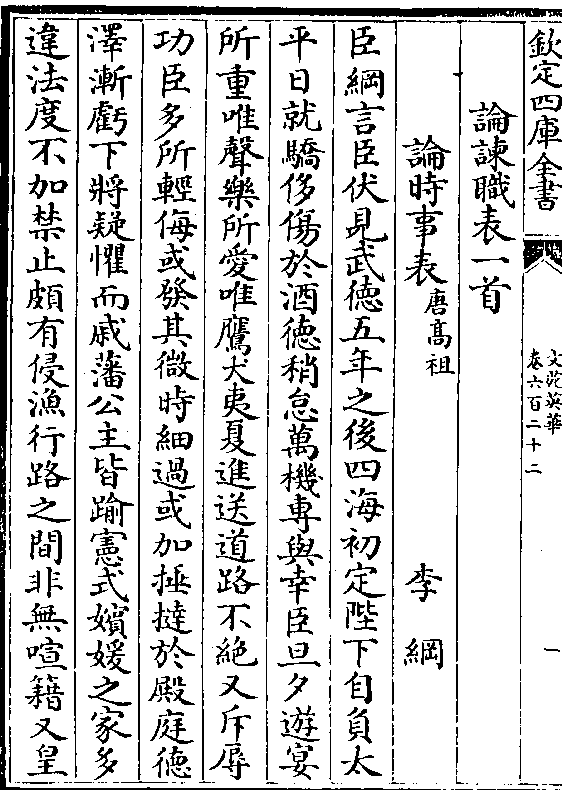 欽定四庫全書
文苑英華
卷六百二十二
一
論諫職表一首
論時事表唐髙祖
李綱
臣綱言臣伏見武徳五年之後四海初定陛下自負太
平日就驕侈傷於酒徳稍怠萬機専與幸臣旦夕遊宴
所重唯聲樂所愛唯鷹犬夷夏進送道路不絶又斥辱
功臣多所輕侮或發其微時細過或加捶撻於殿庭徳
澤漸虧下將疑懼而戚藩公主皆踰憲式嬪媛之家多
違法度不加禁止頗有侵漁行路之間非無喧籍又皇